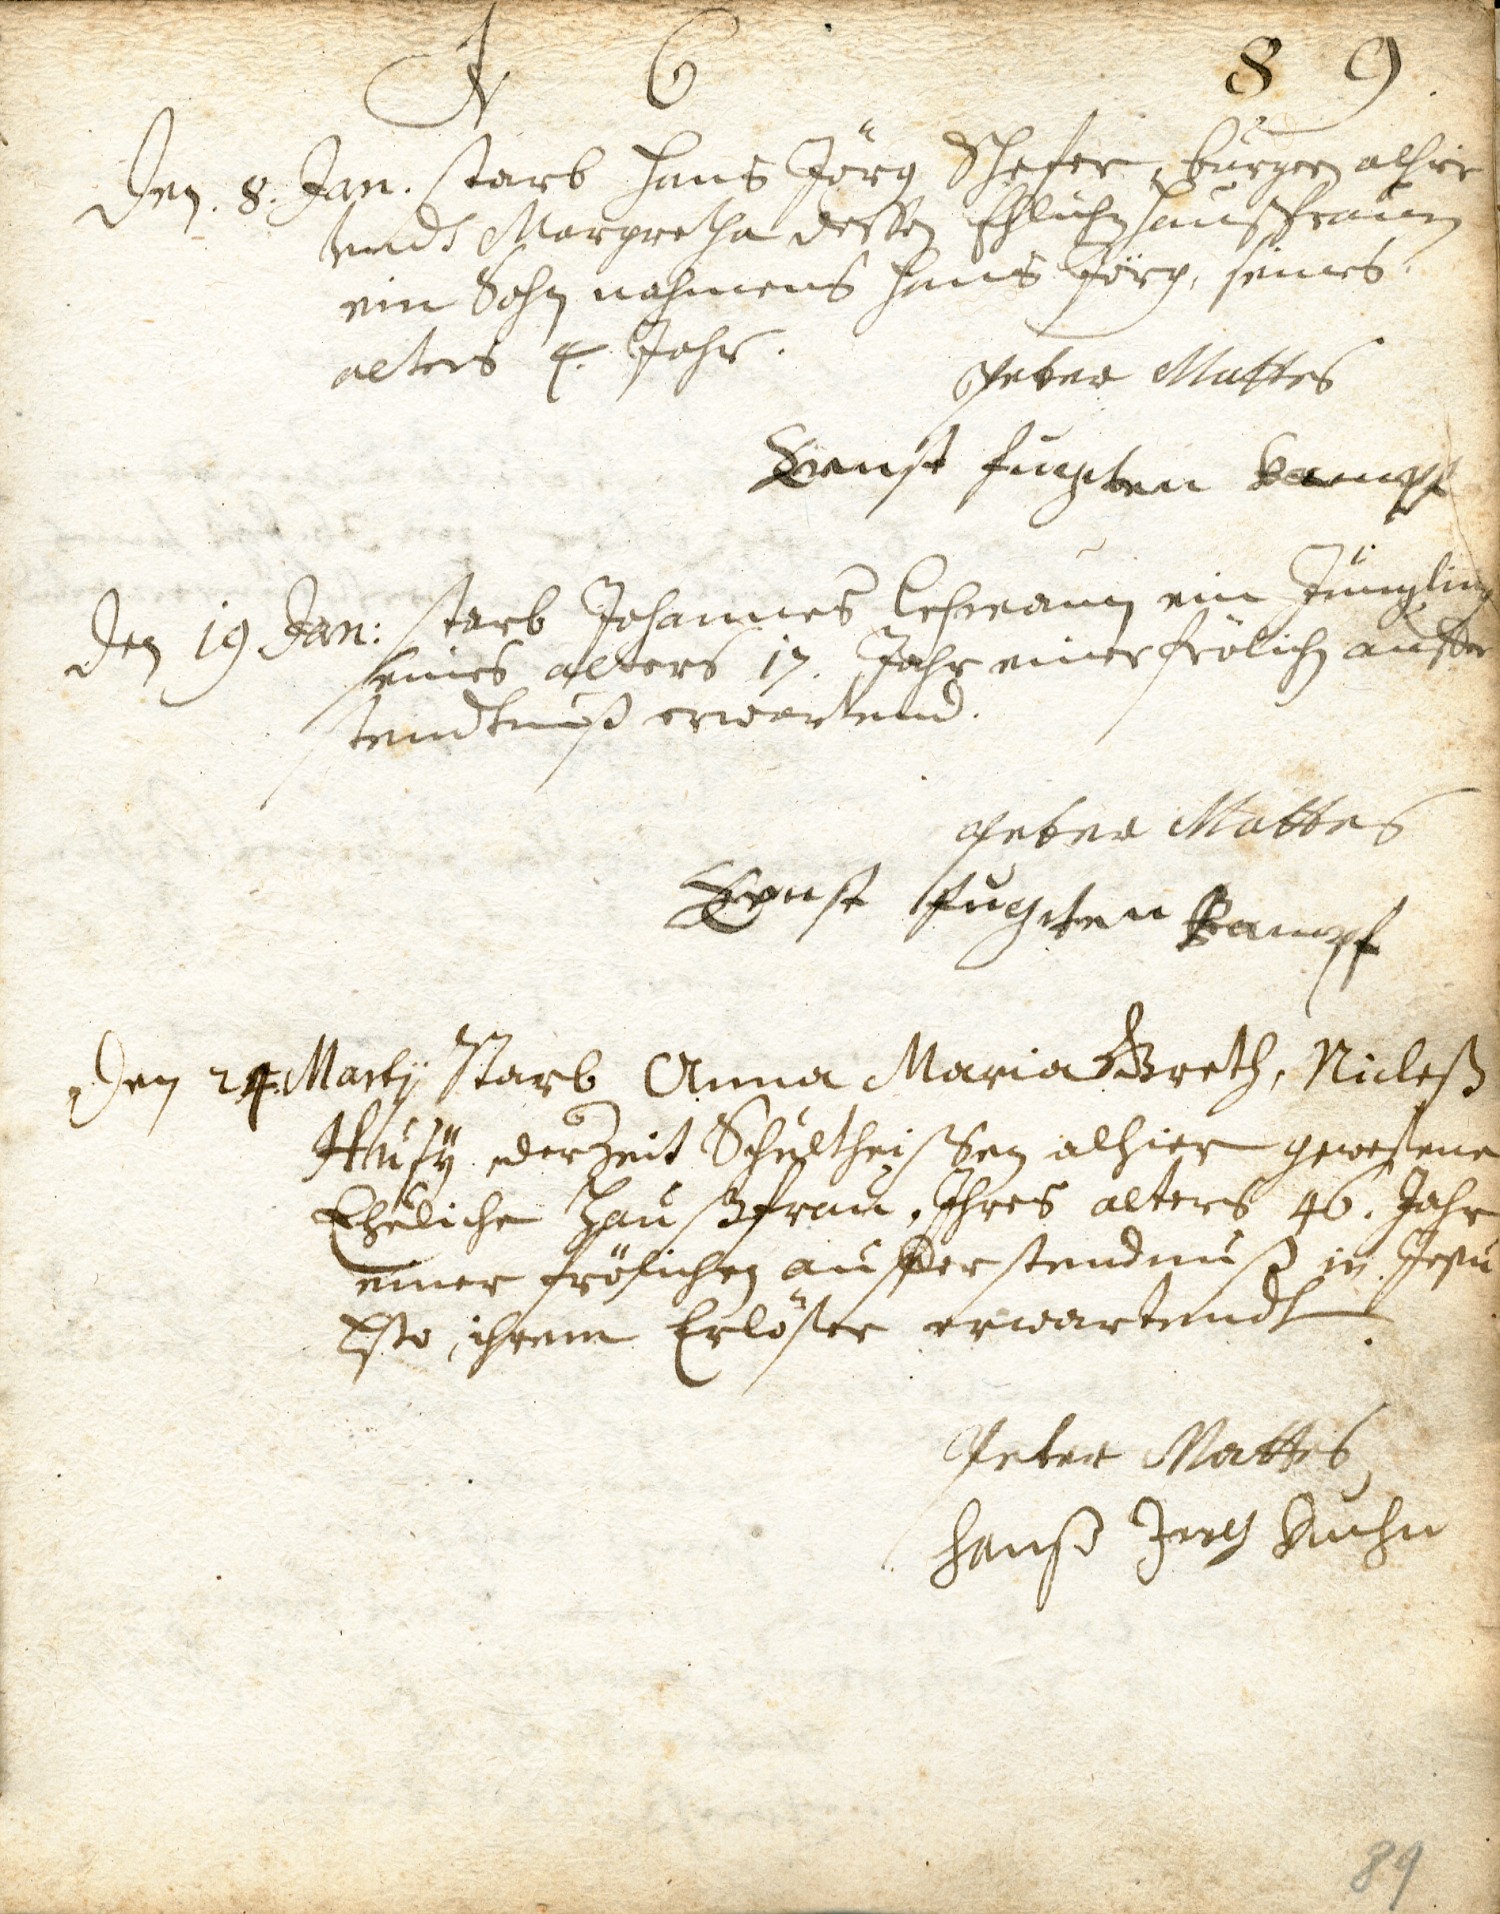 1 6 8 9.
Den. 8. Jan. starb Hans Jörg Schefer, burger alhier
undt Margretha dessen Ehlich haußfrauen
ein Sohn nahmens Hans Jörg, seines
alters 4. Jahr.
Peter Mattes
Ernst
Den 19 Jan: starb Johannes Lehmann ein Jüngling
seines alters 17. Jahr einer frölich auffer
stendtnuß erwartend.
Peter Mattes
Ernst
Den 24 Marty Starb Anna Maria Greth, Nicleß
Husy derzeit Schultheissen alhier gewesene
Eheliche Haußfrau, Ihres alters 46. Jahr
einer frölichen aufferstendnuß in Jesu
Xsto, ihrem Erlößer erwartendt
Peter Mattes
Hanß Jerg Kuhn
89